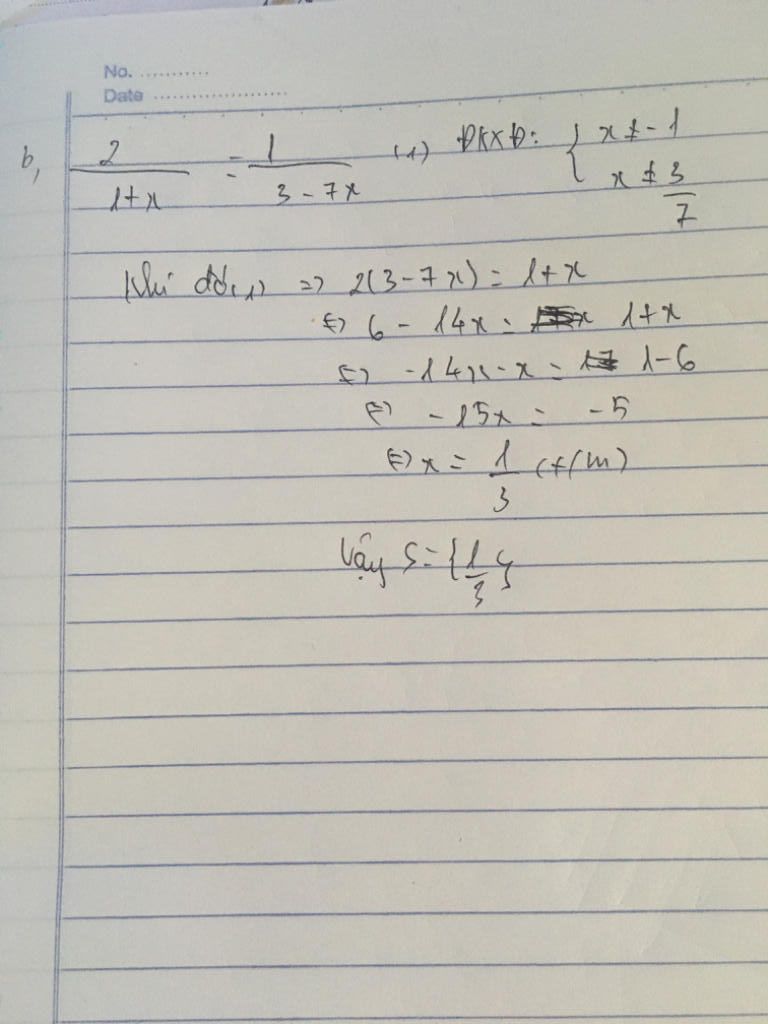 No. ...........
Date .....................
b, 2/(1+x) = 1/(3-7x) (1) ĐKXĐ: { x ≠ -1
x ≠ 3/7
Khi đó (1) => 2(3-7x) = 1+x
<=> 6 - 14x = 1+x
<=> -14x - x = 1-6
<=> -15x = -5
<=> x = 1/3 (t/m)
Vậy S = {1/3}